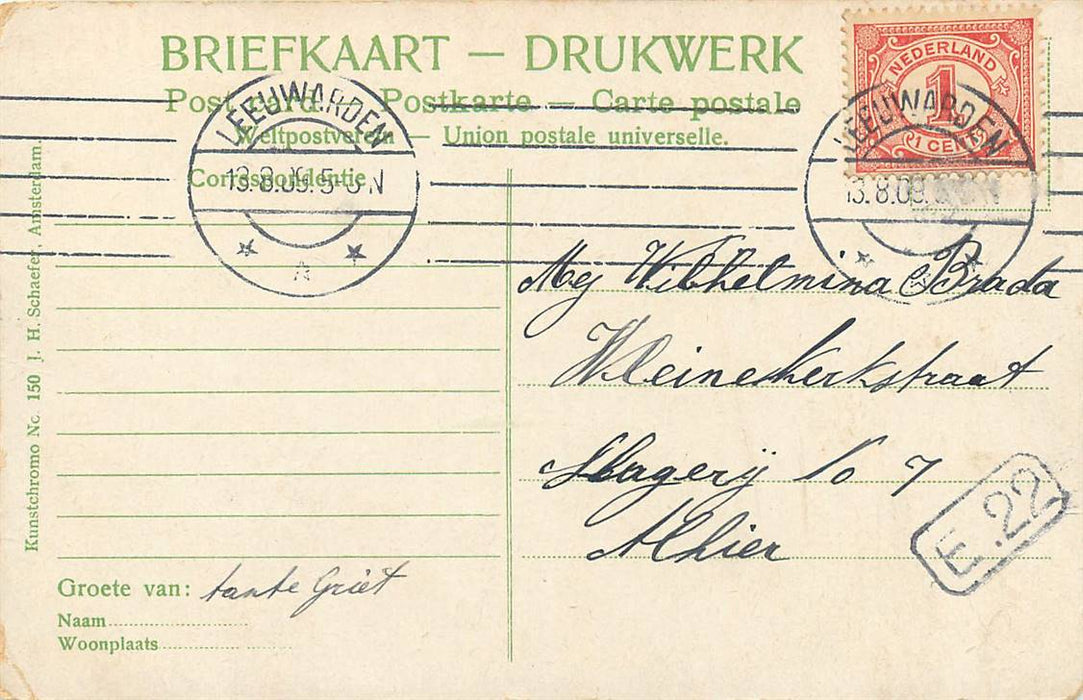 BRIEFKAART — DRUKWERK
Post card. — Postkarte — Carte postale
Weltpostverein — Union postale universelle.
Correspondentie
NEDERLAND
1
1 CENT
LEEUWARDEN
13.8.09. 5-6 N
LEEUWARDEN
13.8.09.
Mej Wilhelmina Brada
Kleinekerkstraat
Slagerij No 7
Alhier
E.22
Groete van: tante Griet
Naam
Woonplaats
Kunstchromo No. 150 J. H. Schaefer, Amsterdam.